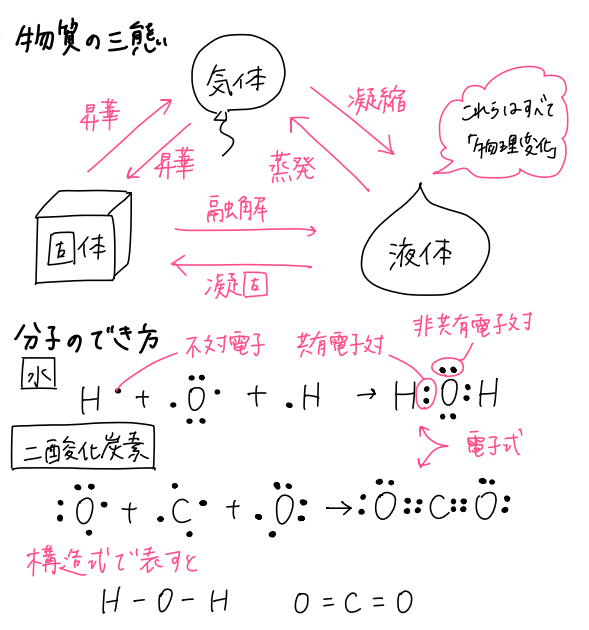 物質の三態
気体
昇華
昇華
凝縮
蒸発
これらはすべて
「物理変化」
固体
融解
凝固
液体
分子のでき方
水
不対電子
共有電子対
非共有電子対
H・ + ・Ö・ + ・H → H:Ö:H
電子式
二酸化炭素
:Ö・ + ・C・ + ・Ö: → :Ö::C::Ö:
構造式で表すと
H-O-H O=C=O